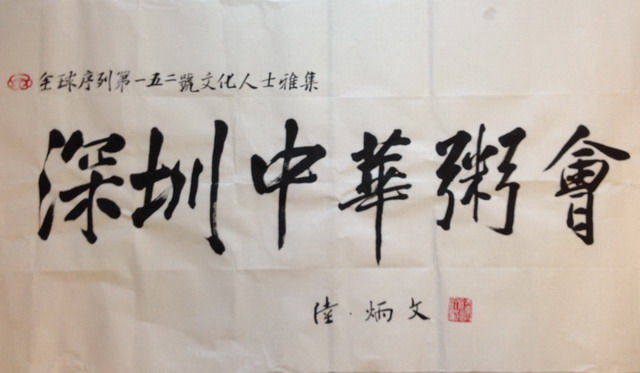 全球序列第一五二號文化人士雅集
深圳中華粥會
陸·炳文